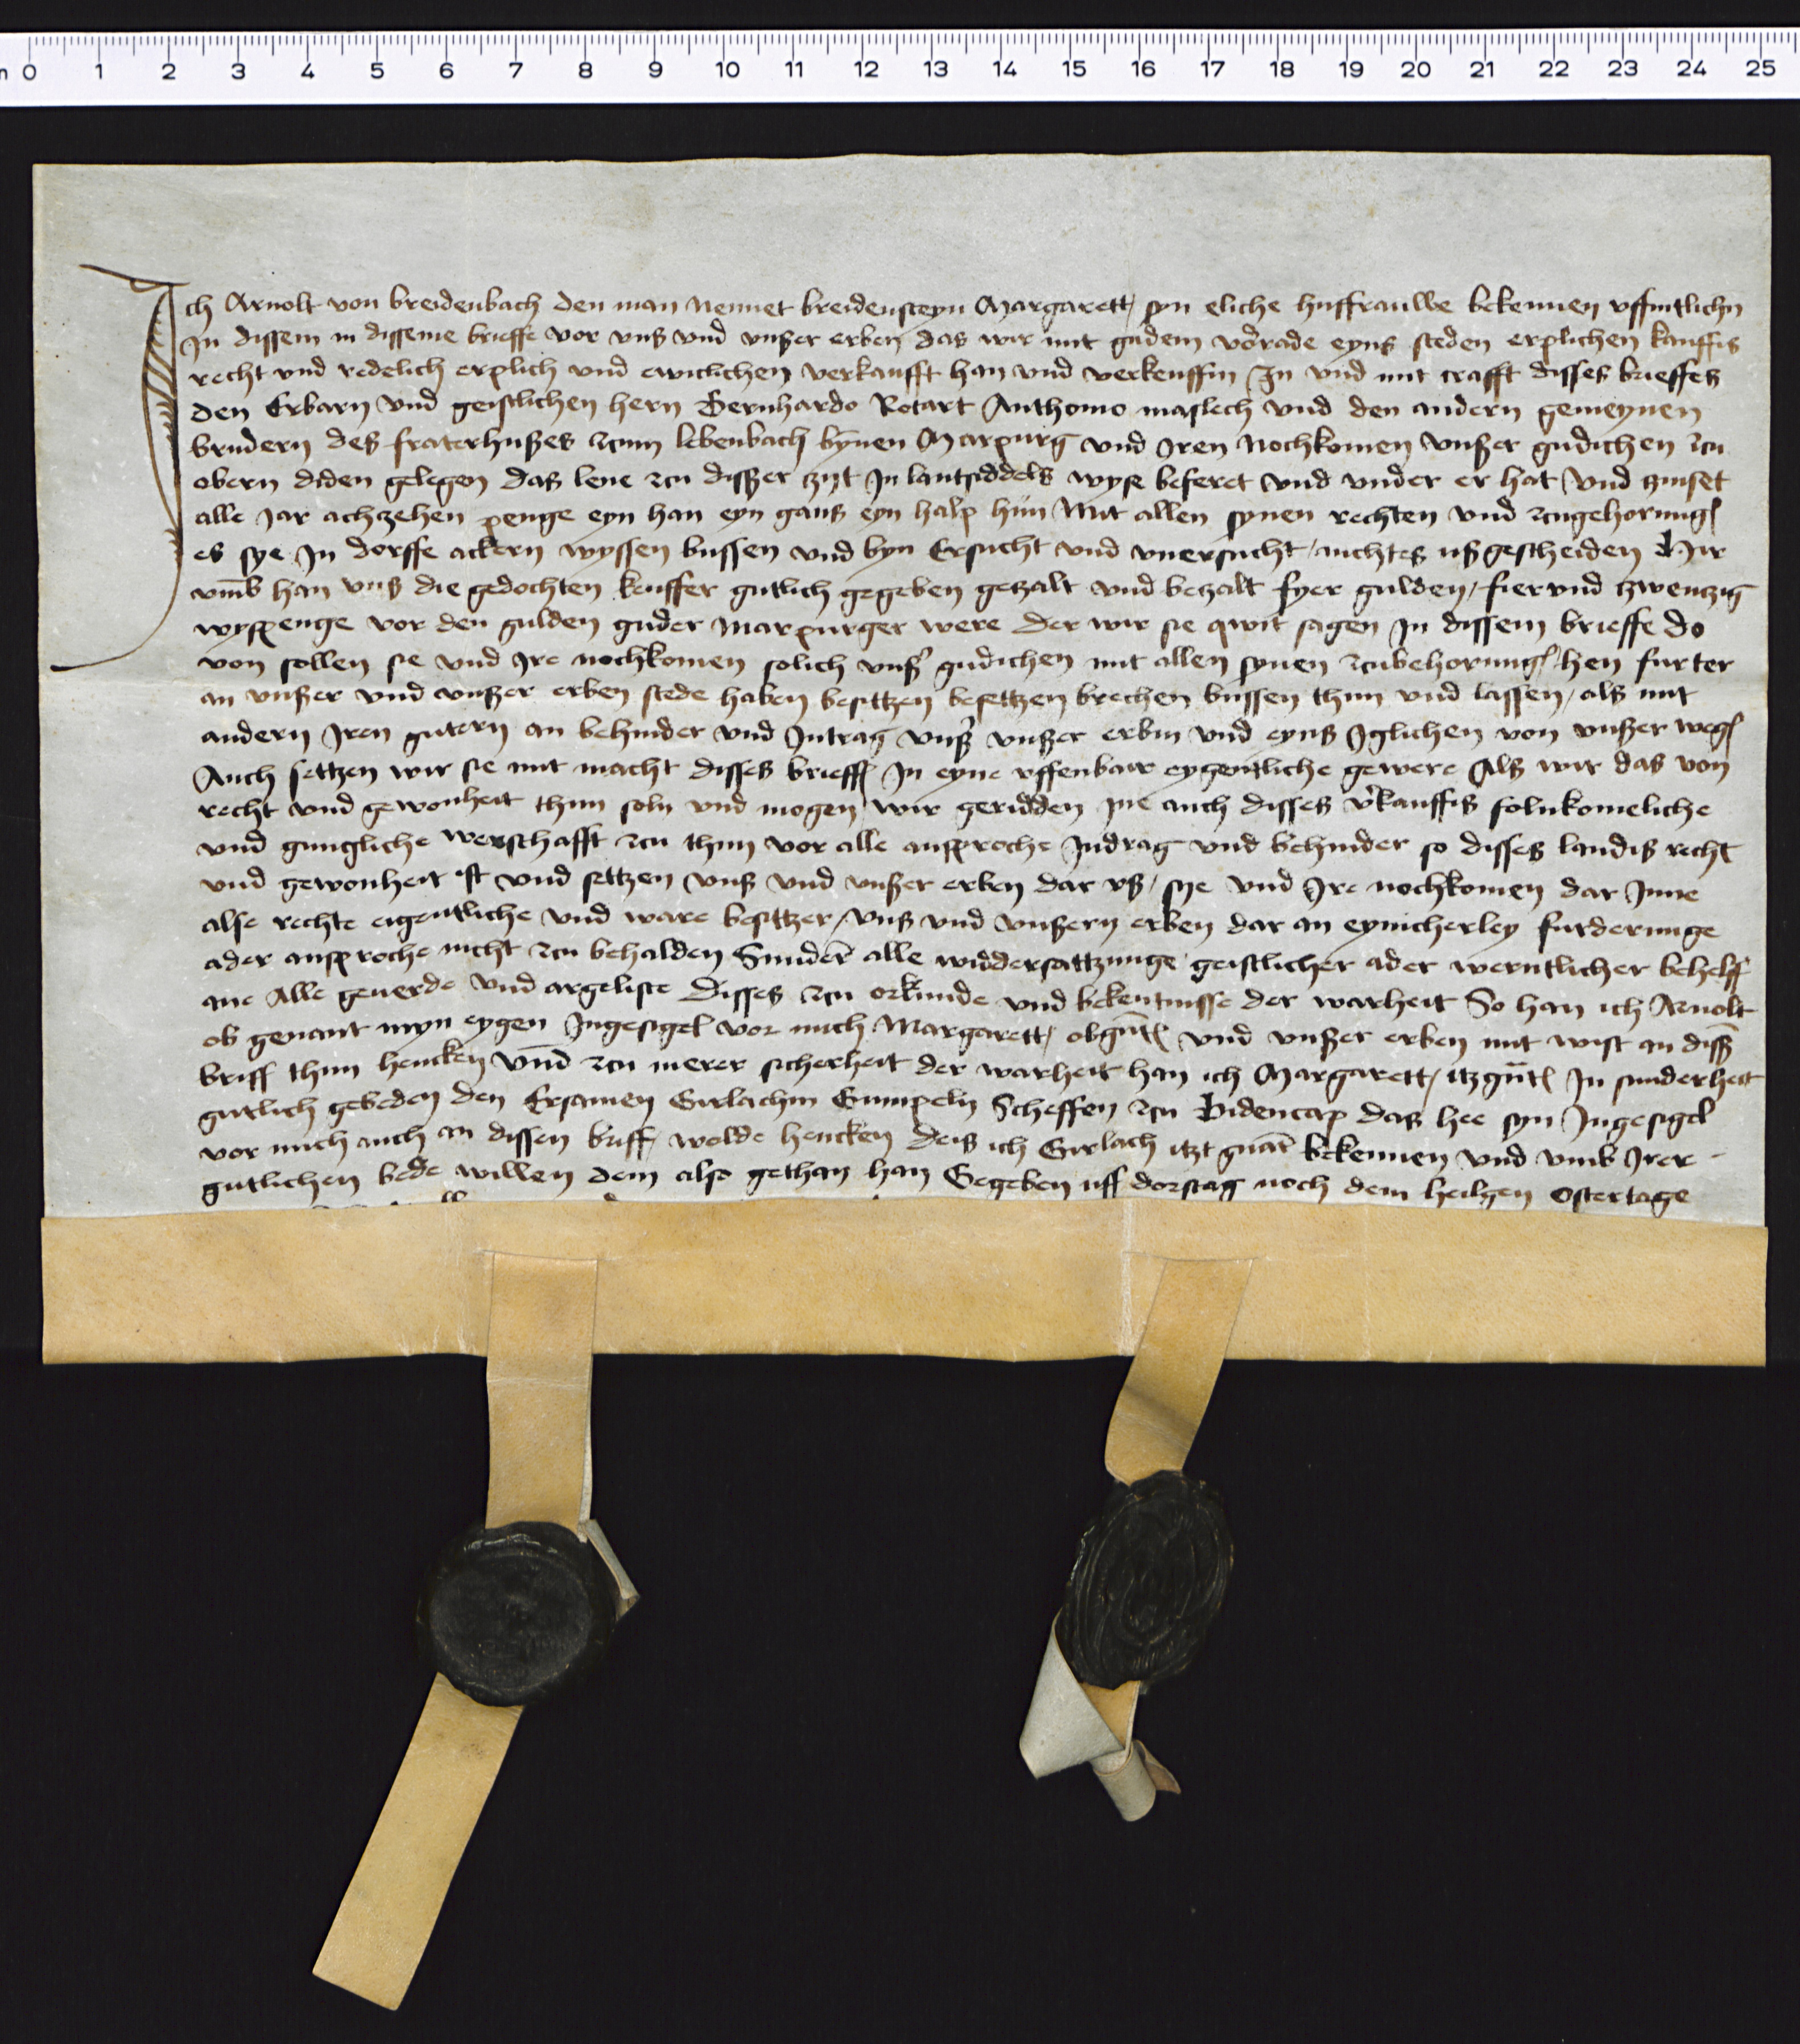 0 1 2 3 4 5 6 7 8 9 10 11 12 13 14 15 16 17 18 19 20 21 22 23 24 25
Ich Arnolt von breidenbach den man nennet breidensteyn Margarett syn eliche husfrauwe bekennen uffintlichn
In dissem in disseme brieffe vor uns und unßer erben das wir mit gudem vorade eyns steden erplichen kauffis
recht und redelich erplich und ewiclichen verkaufft han und verkeuffin In und mit crafft disses brieffes
den Erbarn und geistlichen hern Bernhardo Rotart Anthonio und den andern gemeynen
brudern des fraterhußes zcum lebenbach bynen Marpurg und Iren nochkomen unßer gudichen zcu
obern diden gelegen das lene zcu disßer zyt In lantsiddels wyse beseret und under er hat und zinset
alle Jar achzehen penge eyn han eyn gans eyn halp hün Mit allen synen rechten und zcugehorung
es sye In dorffe ackern wyssen bussen und byn Ersucht und unersucht nichtes ußgescheiden Hir
umb han uns die gedochten keuffer gutlich gegeben gezalt und bezalt fyer gulden fier und zwenczig
wyspenge vor den gulden guder Marpurger were der wir sie qwit sagen In dissem brieffe do
von sollen sie und Ire nochkomen solich unß gudichen mit allen synen zcubehorung hen furter
an unßer und unßer erben stede haben besittzen besettzen brechen bussen thun und lassen als mit
andern Iren gutern an behinder und Intrag unß unßer erbin und eyns Iglichen von unßer weg
Auch settzen wir sie mit macht disses brieff In eyne uffenbar eygentliche gewere Als wir das von
recht und gewonheit thun soln und mogen wir geridden sie auch disses vkauffis folnkomeliche
und gungliche werschafft zcu thun vor alle ansproche Indrag und behinder so disses landis recht
und gewonheit ist und settzen uns und unßer erben dar uß sye und Ire nochkomen dar Inne
alse rechte eigentliche und ware besittzer uns und unßern erben dar an eynicherley furderunge
ader ansproche nicht zcu behalden Sunder alle widdersattzunge geistlicher ader werntlicher behelff
ane Alle geuerde und argeliste Disses zcu orkunde und bekentnisse der warheit So han ich Arnolt
ob genant myn eygen Ingesigel vor mich Margarett obgnt und unßer erben mit wist an diss
briff thun hencken Und zcu merer sicherheit der warheit han ich Margarett itzgnt In sunderheit
gutlich gebeden den Ersamen Girlachin Gumpeln Scheffen zcu Bidencap das hee syn Ingesigel
vor mich auch an dissen briff wolde hencken deis ich Girlach itzt gnat bekennen und umb Irer
gutlichen bede willen dem also gethan han Gegeben uff dorstag noch dem heilgen Ostertage